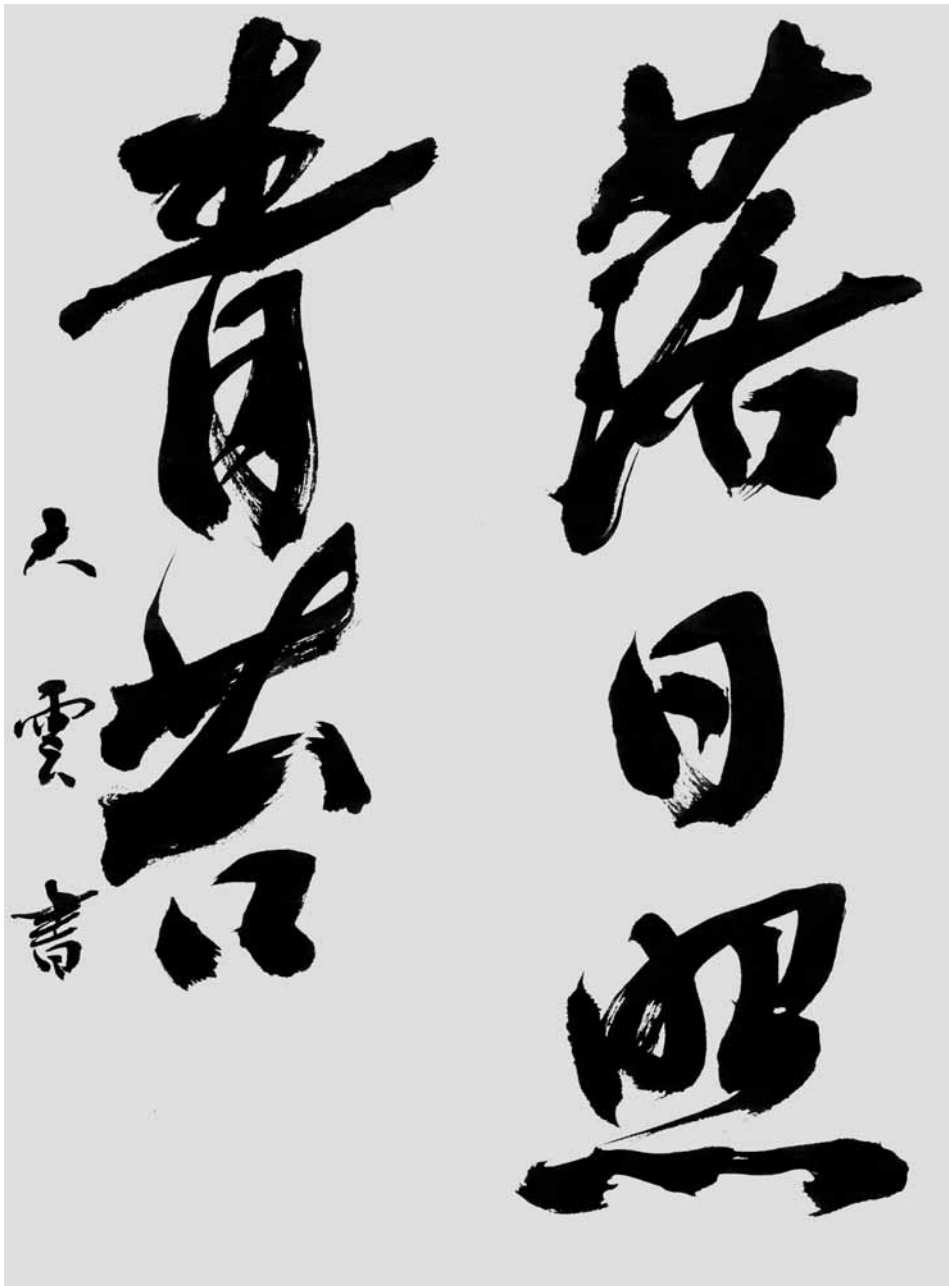 落日照
青苔
大雲書